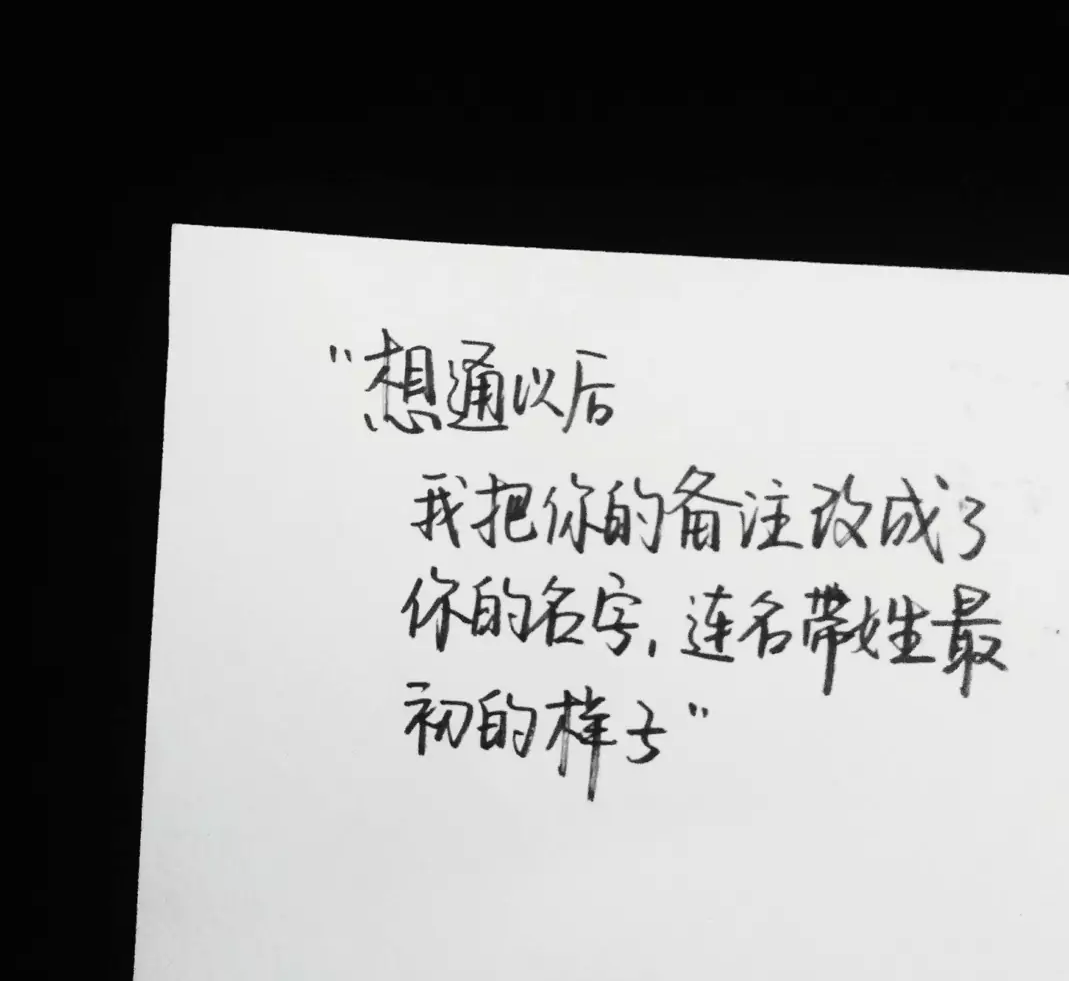 "想通以后
我把你的备注改成了
你的名字,连名带姓最
初的样子"